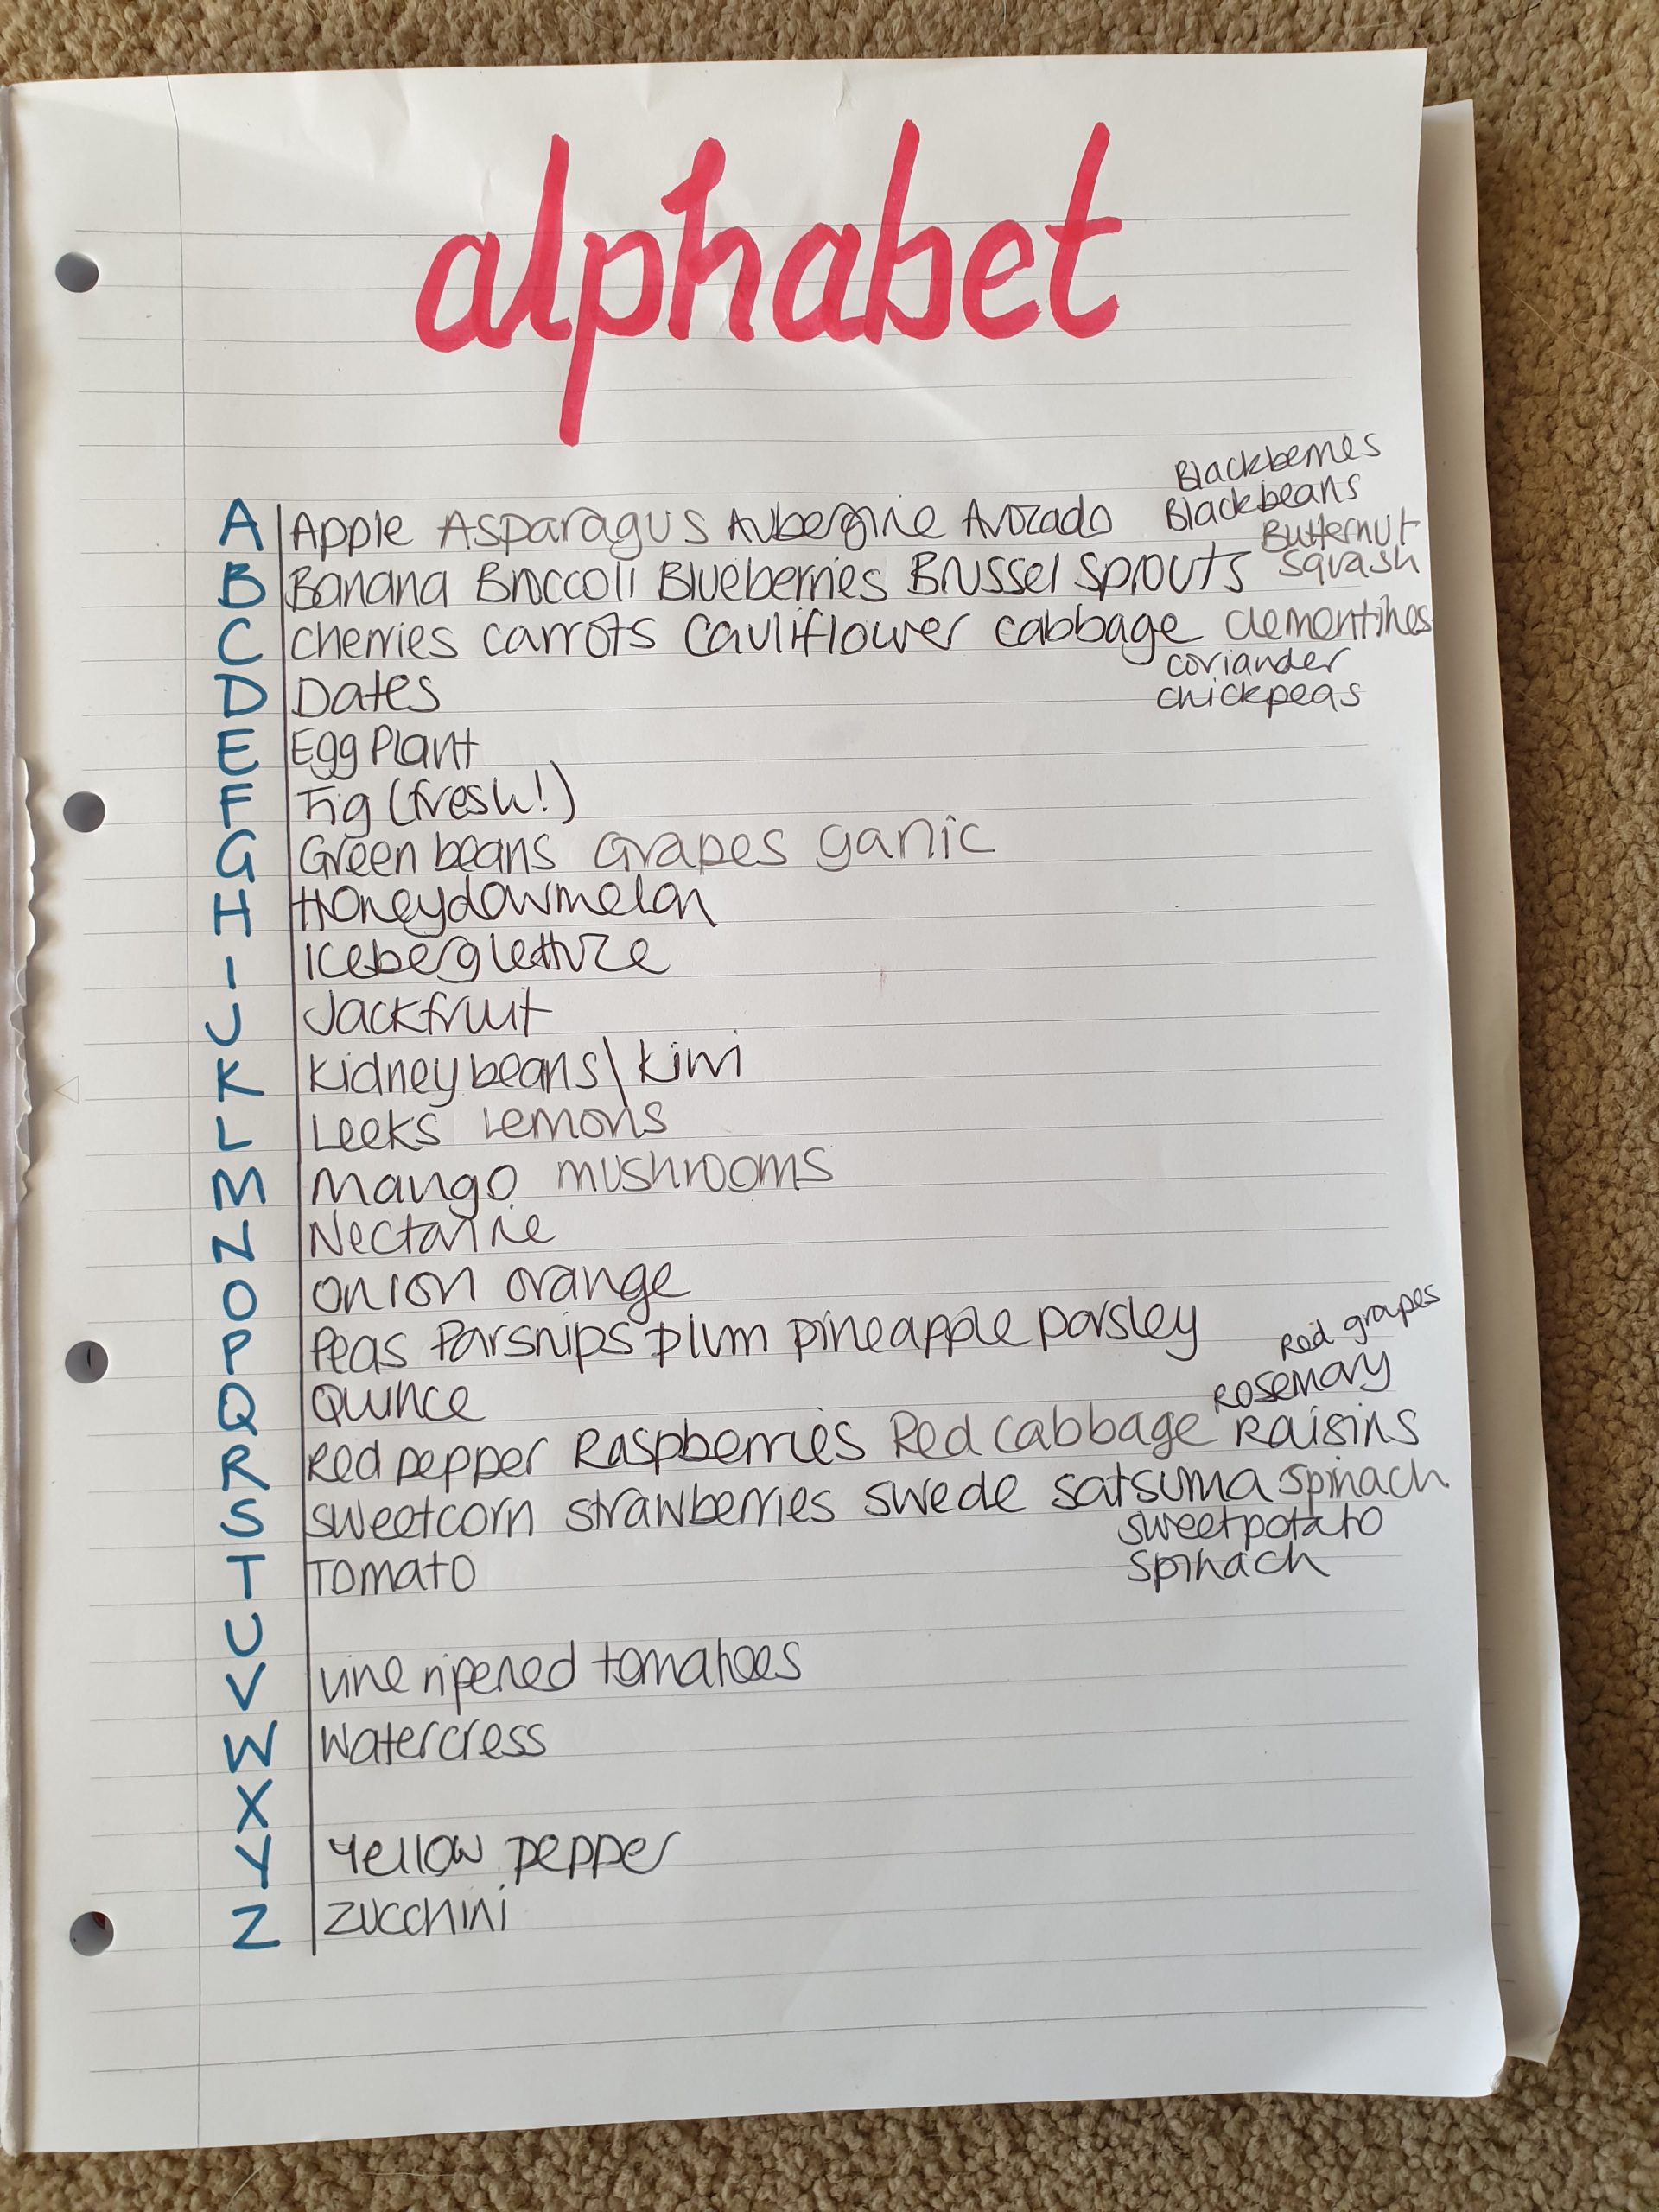 alphabet
Blackberries
Blackbeans
A Apple Asparagus Aubergine Avozado
Butternut
squash
B Banana Broccoli Blueberries Brussel sprouts
C cherries carrots cauliflower cabbage clementines
coriander
chickpeas
D Dates
E Egg Plant
F Fig (fresh!)
G Green beans Grapes garlic
H Honeydowmelon
I Iceberglettuce
J Jackfruit
K kidneybeans\ kiwi
L Leeks Lemons
M Mango mushrooms
N Nectarine
O onion orange
P Peas Parsnips plum pineapple parsley
Red grapes
Q Quince
rosemary
R Red pepper Raspberries Red cabbage raisins
S sweetcorn strawberries swede satsuma spinach
sweetpotato
spinach
T Tomato
U
V vine ripened tomatoes
W Watercress
X
Y Yellow pepper
Z zucchini